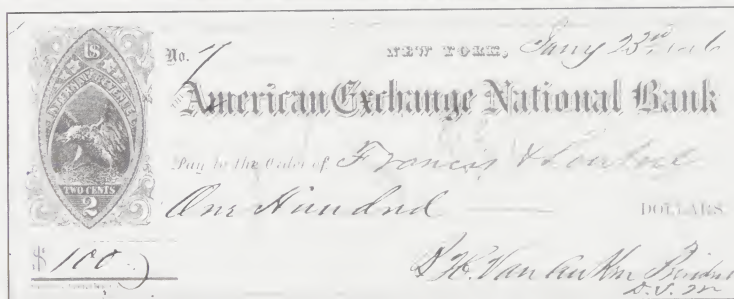 US
INTERNAL REVENUE
TWO CENTS
2
No. 7
NEW YORK, Jany 23rd
THE American Exchange National Bank
Pay to the Order of Francis &
One Hundred DOLLARS
$ 100
Van